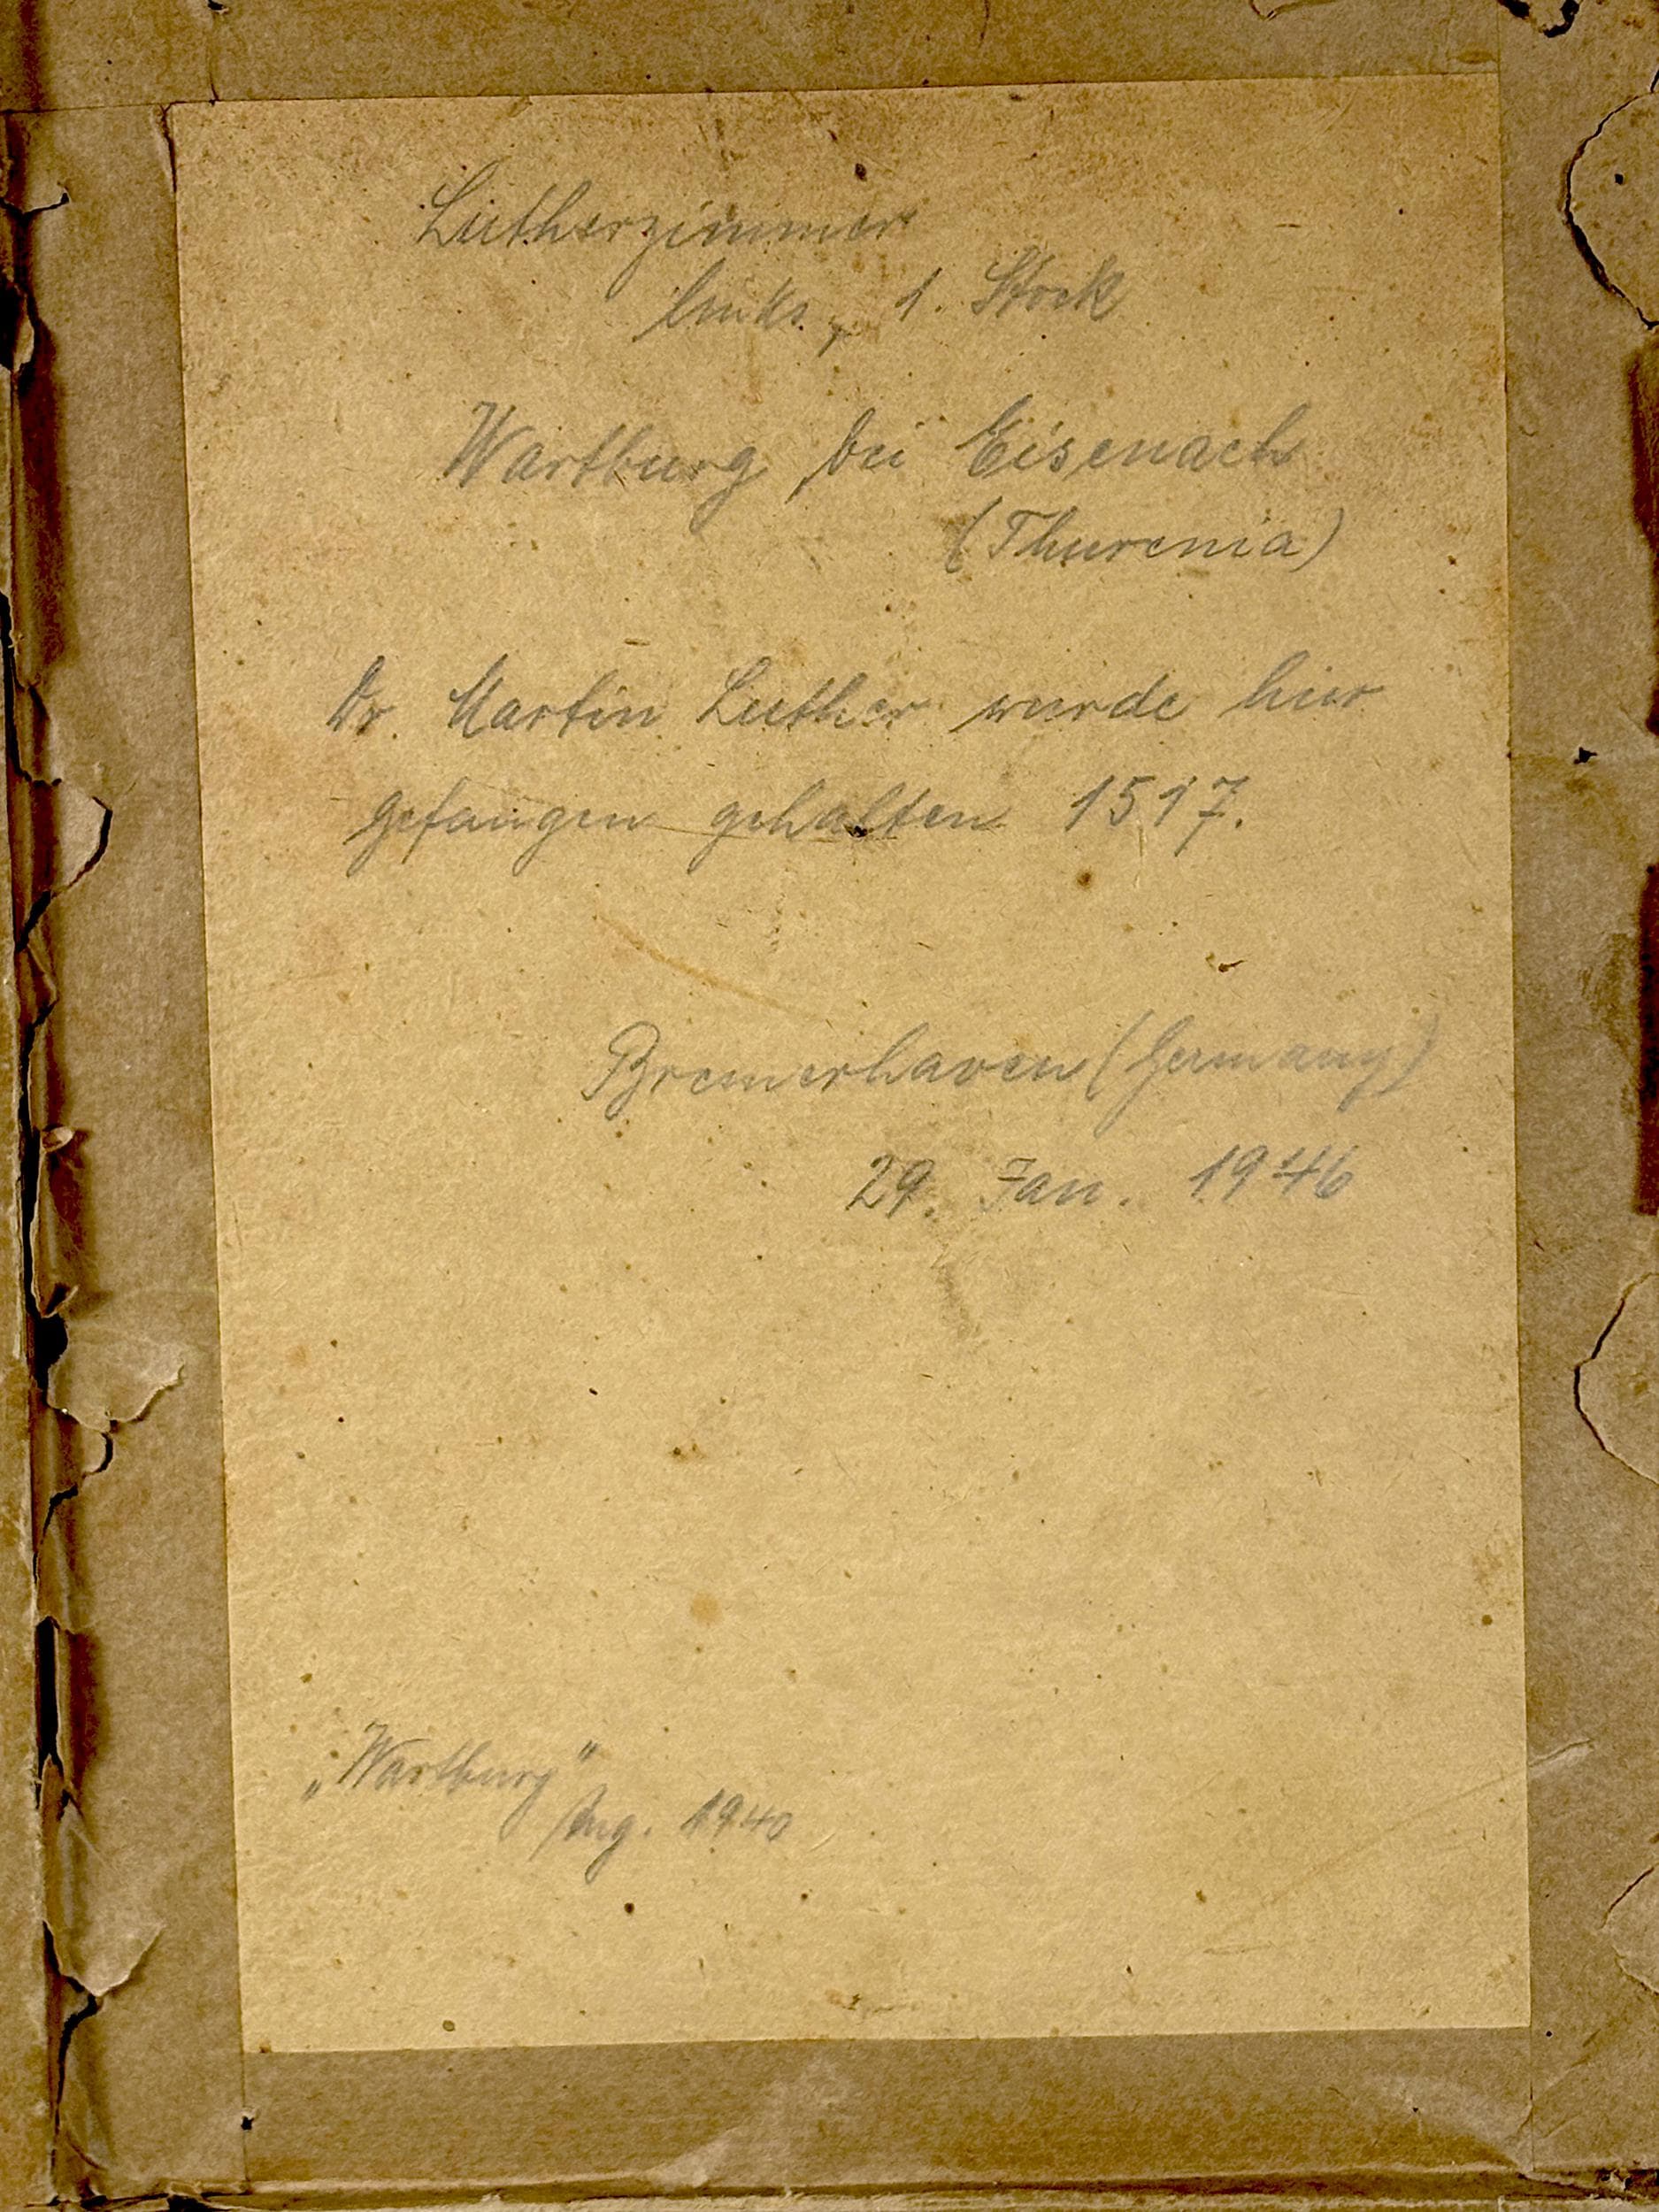 Lutherzimmer
links, 1. Stock
Wartburg bei Eisenach
(Thurenia)
Dr. Martin Luther wurde hier
gefangen gehalten 1517.
Bremerhaven (Germany)
29. Jan. 1946
„Wartburg”
Aug. 1940